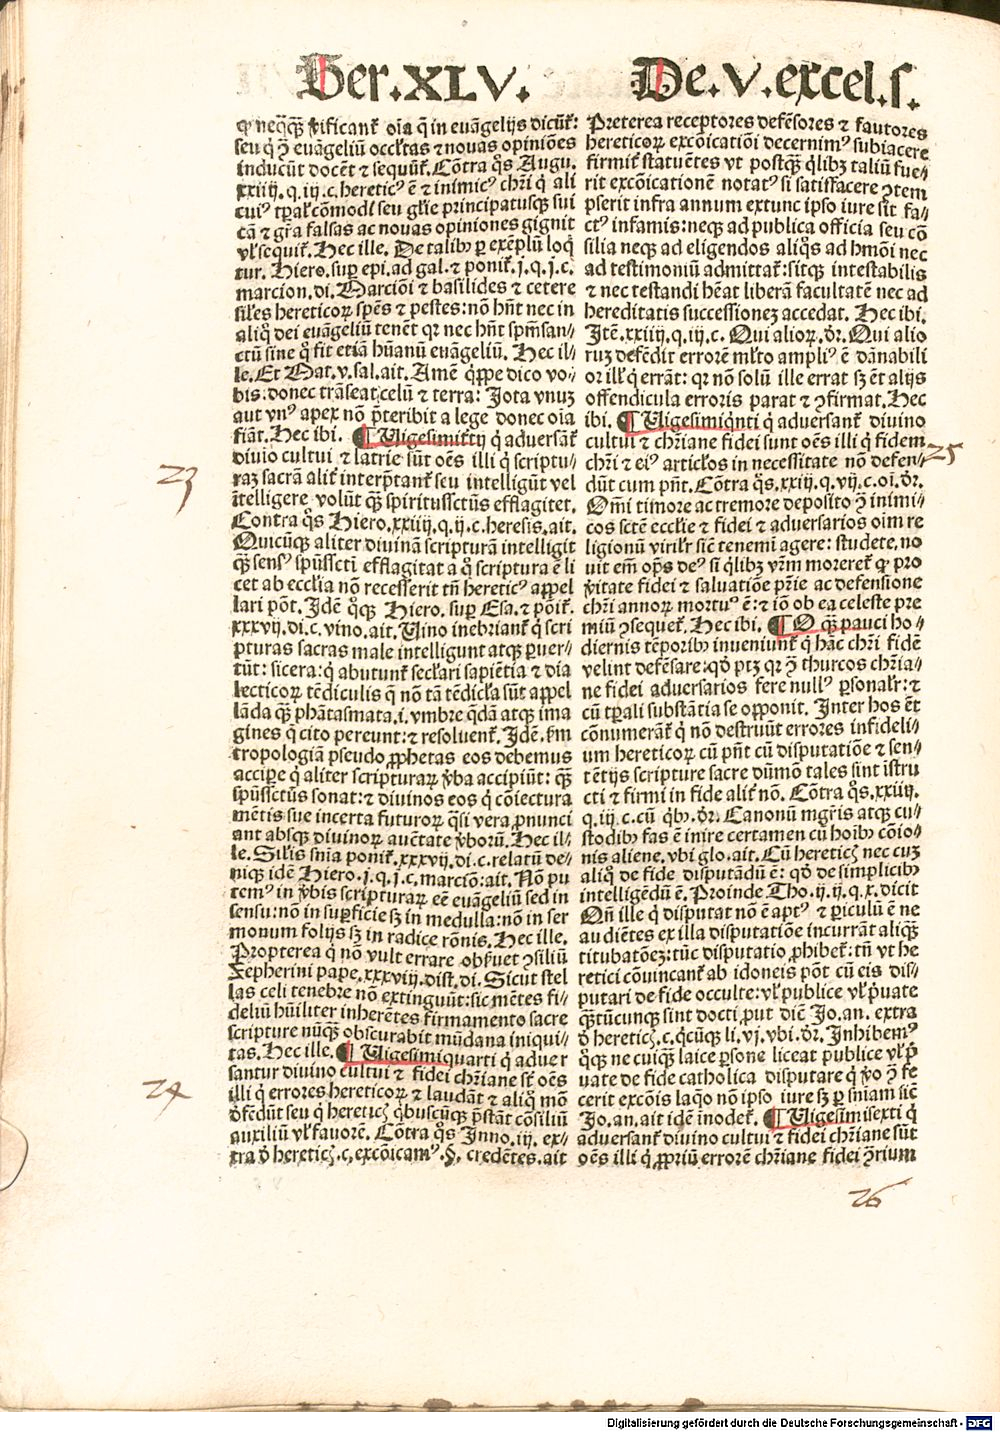 Ser.XLV.
De.V.excel.s.
ꝙ neqꝗꝫ v̓ificant᷑ oı̄a q̄ in euāgelijs dicūt᷑:
seu q̇ ꝯ̄ euāgeliū occl̓tas ⁊ nouas opiniōes
inducūt docēt ⁊ sequūt᷑. Cōtra q̊s Augu.
xxiiij.q.iij.c.hereticꝰ ē ⁊ inimicꝰ chr̄i q̇ ali
cuiꝰ tꝑal̓ cōmodi seu gl̓ie principatusqꝫ sui
cā ⁊ gr̄a falsas ac nouas opiniones gignit
vl̓ sequit᷑. Hec ille. De talibꝰ ꝑ exēplū loq̇
tur. Hiero. suꝑ epi. ad gal. ⁊ ponit᷑.j.q.j.c.
marcion.di. Marciōi ⁊ basilides ⁊ cetere
siles hereticoꝝ spēs ⁊ pestes: nō hn̄t nec in
aliq̊ dei euāgeliū tenēt qꝛ nec hn̄t spm̄san-
ctū sine q̊ fit etiā hūanū euāgeliū. Hec il-
le. Et Mat.v.sal.ait. Amē q̇ppe dico vo-
bis: donec trāseat celū ⁊ terra: Iota vnuꝫ
aut vnꝰ apex nō p̄teribit a lege donec oı̄a
fiāt. Hec ibi. ¶ Uigesimit̓tij q̇ aduersāt᷑
diuio cultui ⁊ latrie sūt oēs illi q̇ scriptu-
raꝫ sacrā alit̓ interp̄tant᷑ seu intelligūt vel
ītelligere volūt qꝫ̄ spiritussctūs efflagitet.
Contra q̊s Hiero.xxiiij.q.iij.c.heresis.ait.
Quicūqꝫ aliter diuinā scripturā intelligit
qꝫ̄ sensꝰ spūssctī efflagitat a q̊ scriptura ē li
cet ab eccl̓ia nō recesserit tn̄ hereticꝰ appel
lari pōt. Idē q̊qꝫ Hiero. suꝑ Esa. ⁊ pōit᷑.
xxxvij.di.c.vino.ait. Uino inebriant᷑ q̇ scri
pturas sacras male intelligunt atqꝫ ꝑuer-
tūt: sicera: q̇ abutunt᷑ secl̓ari sapiētia ⁊ dia
lecticoꝝ tēdiculis q̄ nō tā tēdicl̓a sūt appel
lāda qꝫ̄ phātasmata.i.vmbre q̄dā atqꝫ ima
gines q̄ cito pereunt: ⁊ resoluent᷑. Idē. ẜm
tropologiā pseudo ꝓphetas eos debemus
accipe q̇ aliter scripturaꝝ v̓ba accipiūt: qꝫ̄
spūssctūs sonat: ⁊ diuinos eos q̇ cōiectura
mētis sue incerta futuroꝝ q̄si vera ꝓnunci
ant absqꝫ diuinoꝝ auc̄tate v̓boꝝ. Hec il-
le. Silis snīa ponit᷑.xxxvij.di.c.relatū de-
niqꝫ idē Hiero.j.q.j.c.marciō: ait. Nō pu
temꝰ in v̓bis scripturaꝝ eē euāgeliū sed in
sensu: nō in suꝑficie sꝫ in medulla: nō in ser
monum folijs sꝫ in radice rōnis. Hec ille.
Propterea q̇ nō vult errare obẜuet ꝯsiliū
Zepherini pape.xxxviij.dist.di. Sicut stel
las celi tenebre nō extinguūt: sic mētes fi-
deliū hūiliter inherētes firmamento sacre
scripture nūqꝫ̄ obscurabit mūdana iniqui-
tas. Hec ille. ¶ Uigesimiquarti q̇ aduer
santur diuino cultui ⁊ fidei chr̄iane st̄ oēs
illi q̇ errores hereticoꝝ ⁊ laudāt ⁊ aliq̊ mō
d̓fēdūt seu q̇ hereticꝭ q̇buscūqꝫ p̄stāt cōsiliū
auxiliū vl̓ fauorē. Cōtra q̊s Inno.iij. ex-
tra d̓ hereticꝭ.c.excōicamꝰ.§.credētes.ait
Preterea receptores defēsores ⁊ fautores
hereticoꝝ excōicatiōi decernimꝰ subiacere
firmit᷑ statuētes vt postqꝫ̄ q̇libꝫ taliū fue-
rit excōicationē notatꝰ si satisfacere ꝯtem
pserit infra annum extunc ipso iure sit fa-
ctꝰ infamis: neqꝫ ad publica officia seu cō
silia neqꝫ ad eligendos aliq̊s ad hmōi nec
ad testimoniū admittat᷑: sitqꝫ intestabilis
⁊ nec testandi hēat liberā facultatē nec ad
hereditatis successioneꝫ accedat. Hec ibi.
Itē.xxiiij.q.iij.c. Qui alioꝝ. d̓r. Qui alio
ruꝫ defēdit errorē ml̓to ampliꝰ ē dānabili
or ill̓ q̇ errāt: qꝛ nō solū ille errat sꝫ ēt alijs
offendicula erroris parat ⁊ ꝯfirmat. Hec
ibi. ¶ Uigesimiq̇nti q̇ aduersant᷑ diuino
cultui ⁊ chr̄iane fidei sunt oēs illi q̇ fidem
chr̄i ⁊ eiꝰ articl̓os in necessitate nō defen-
dūt cum pn̄t. Cōtra q̊s.xxiij.q.vij.c.oı̄.d̓r.
Omı̄ timore ac tremore deposito ꝯ̄ inimi-
cos sctē eccl̓ie ⁊ fidei ⁊ aduersarios oı̄m re
ligionū viril̓r sic̄ tenemı̄ agere: studete, no
uit em̄ oꝑs deꝰ si q̇libꝫ vr̄m moreret᷑ ꝙ pro
v̓itate fidei ⁊ saluatiōe pr̄ie ac defensione
chr̄i annoꝝ mortuꝰ ē: ⁊ iō ob ea celeste pre
miū ꝯsequet᷑. Hec ibi. ¶ O qꝫ̄ pauci ho-
diernis tēporibꝰ inueniunt᷑ q̇ hāc chr̄i fidē
velint defēsare: qd̓ ptꝫ qꝛ ꝯ̄ thurcos chr̄ia-
ne fidei aduersarios fere nullꝰ ꝑsonal̓r: ⁊
cū tꝑali substātia se opponit. Inter hos ēt
cōnumerāt᷑ q̇ nō destruūt errores infideli-
um hereticoꝝ cū pn̄t cū disputatiōe ⁊ sen-
tētijs scripture sacre dūmō tales sint īstru
cti ⁊ firmi in fide alit̓ nō. Cōtra q̊s.xxiiij.
q.iij.c.cū q̇bꝰ.d̓r. Canonū mgr̄is atqꝫ cu-
stodibꝰ fas ē inire certamen cū hoibꝰ cōio-
nis aliene, vbi glo.ait. Cū hereticꝭ nec cuꝫ
aliq̊ de fide disputādū ē: qd̓ de simplicibꝰ
intelligēdū ē. Proinde Tho.ij.ij.q.x.dicit
Qn̄ ille q̇ disputat nō ē aptꝰ ⁊ ꝑiculū ē ne
audiētes ex illa disputatiōe incurrāt aliqꝫ̄
titubatōeꝫ: tūc disputatio ꝓhibet᷑: tn̄ vt he
retici cōuincant᷑ ab idoneis pōt cū eis dis-
putari de fide occulte: vl̓ publice vl̓ p̄uate
qꝫ̄tūcunqꝫ sint docti, put dic̄ Jo.an. extra
d̓ hereticꝭ.c.q̇cūqꝫ li.vj.vbi.d̓r. Inhibemꝰ
q̊qꝫ ne cuiqꝫ̄ laice ꝑsone liceat publice vl̓ p̄
uate de fide catholica disputare q̇ v̓o ꝯ̄ fe
cerit excōis laq̊o nō ipso iure sꝫ ꝑ sn̄iam sic̄
Jo.an.ait idē inodet᷑. ¶ Uigesimisexti q̇
aduersant᷑ diuino cultui ⁊ fidei chr̄iane sūt
oēs illi q̇ ꝓpriū errorē chr̄iane fidei ꝯ̄rium
23
24
25
26
Digitalisierung gefördert durch die Deutsche Forschungsgemeinschaft - DFG